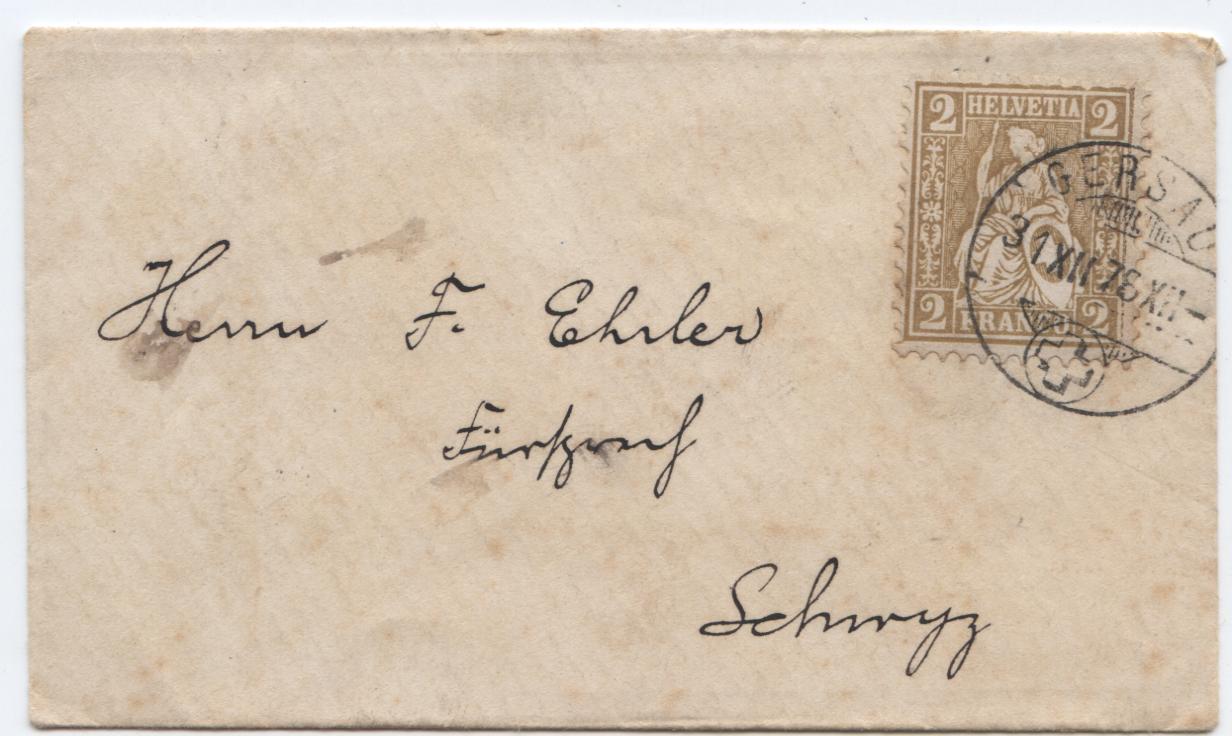 2 HELVETIA 2
2 FRANCO 2
GERSAU
31 XII 76 XII-
Herrn F. Ehrler
Fürsprech
Schwyz